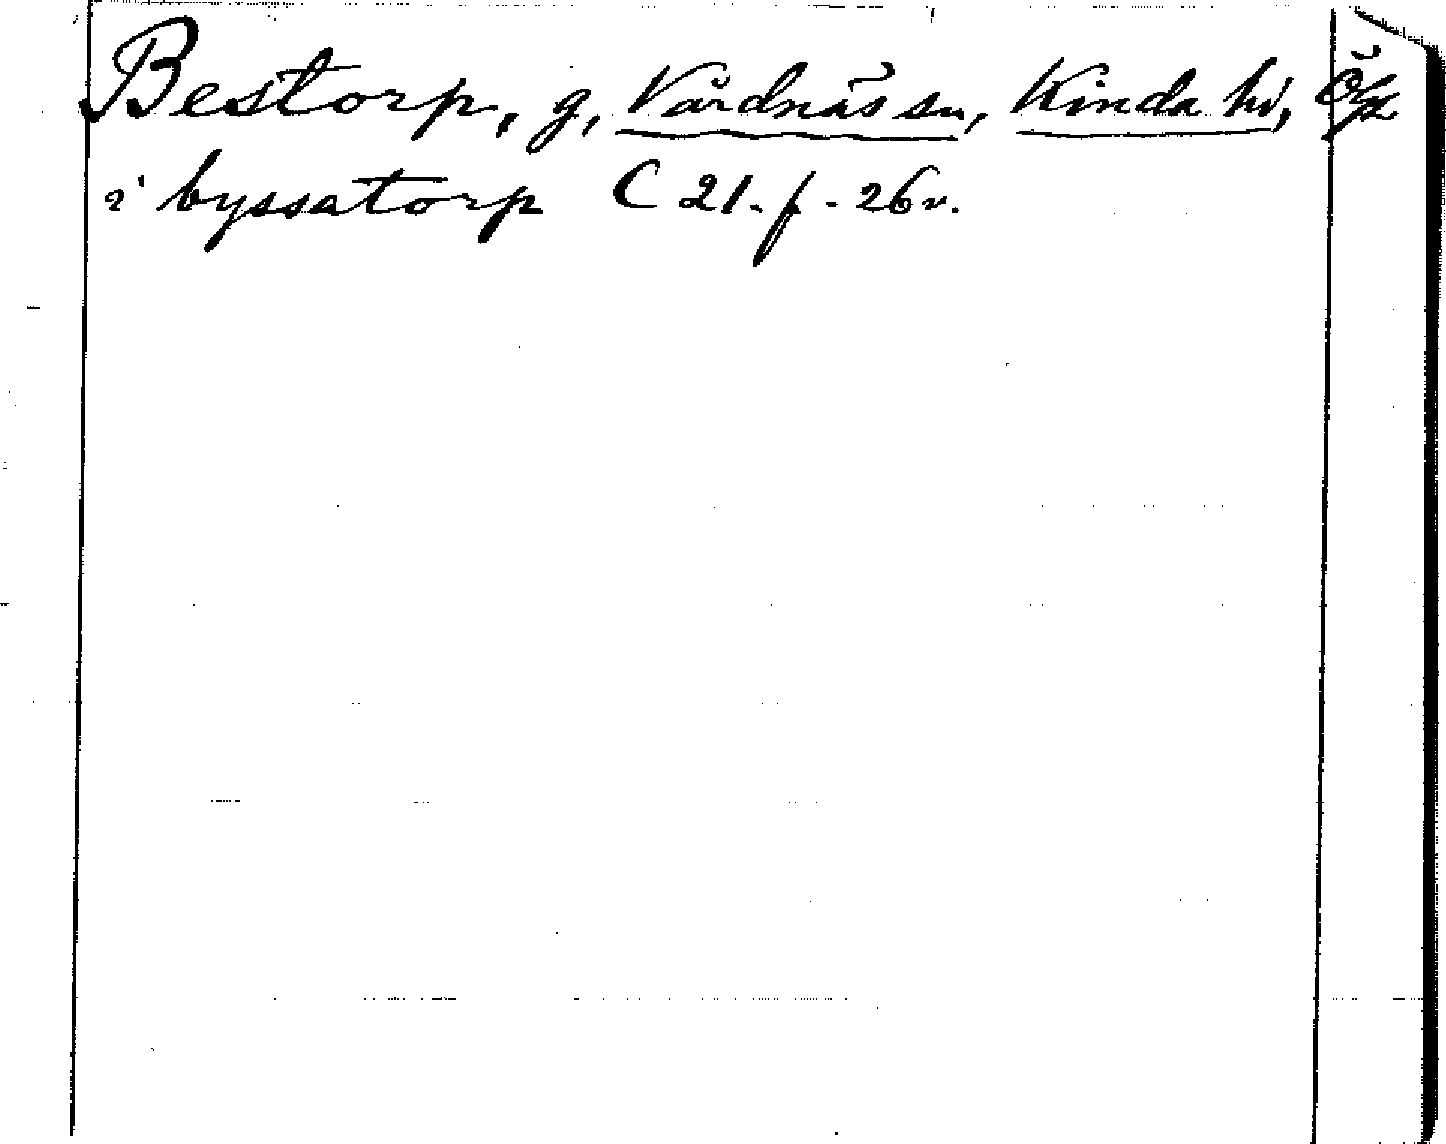 Bestorp, g, Vårdnäs sn, Kinda hd, Ög
i byssatorp C 21. f. 26 v.